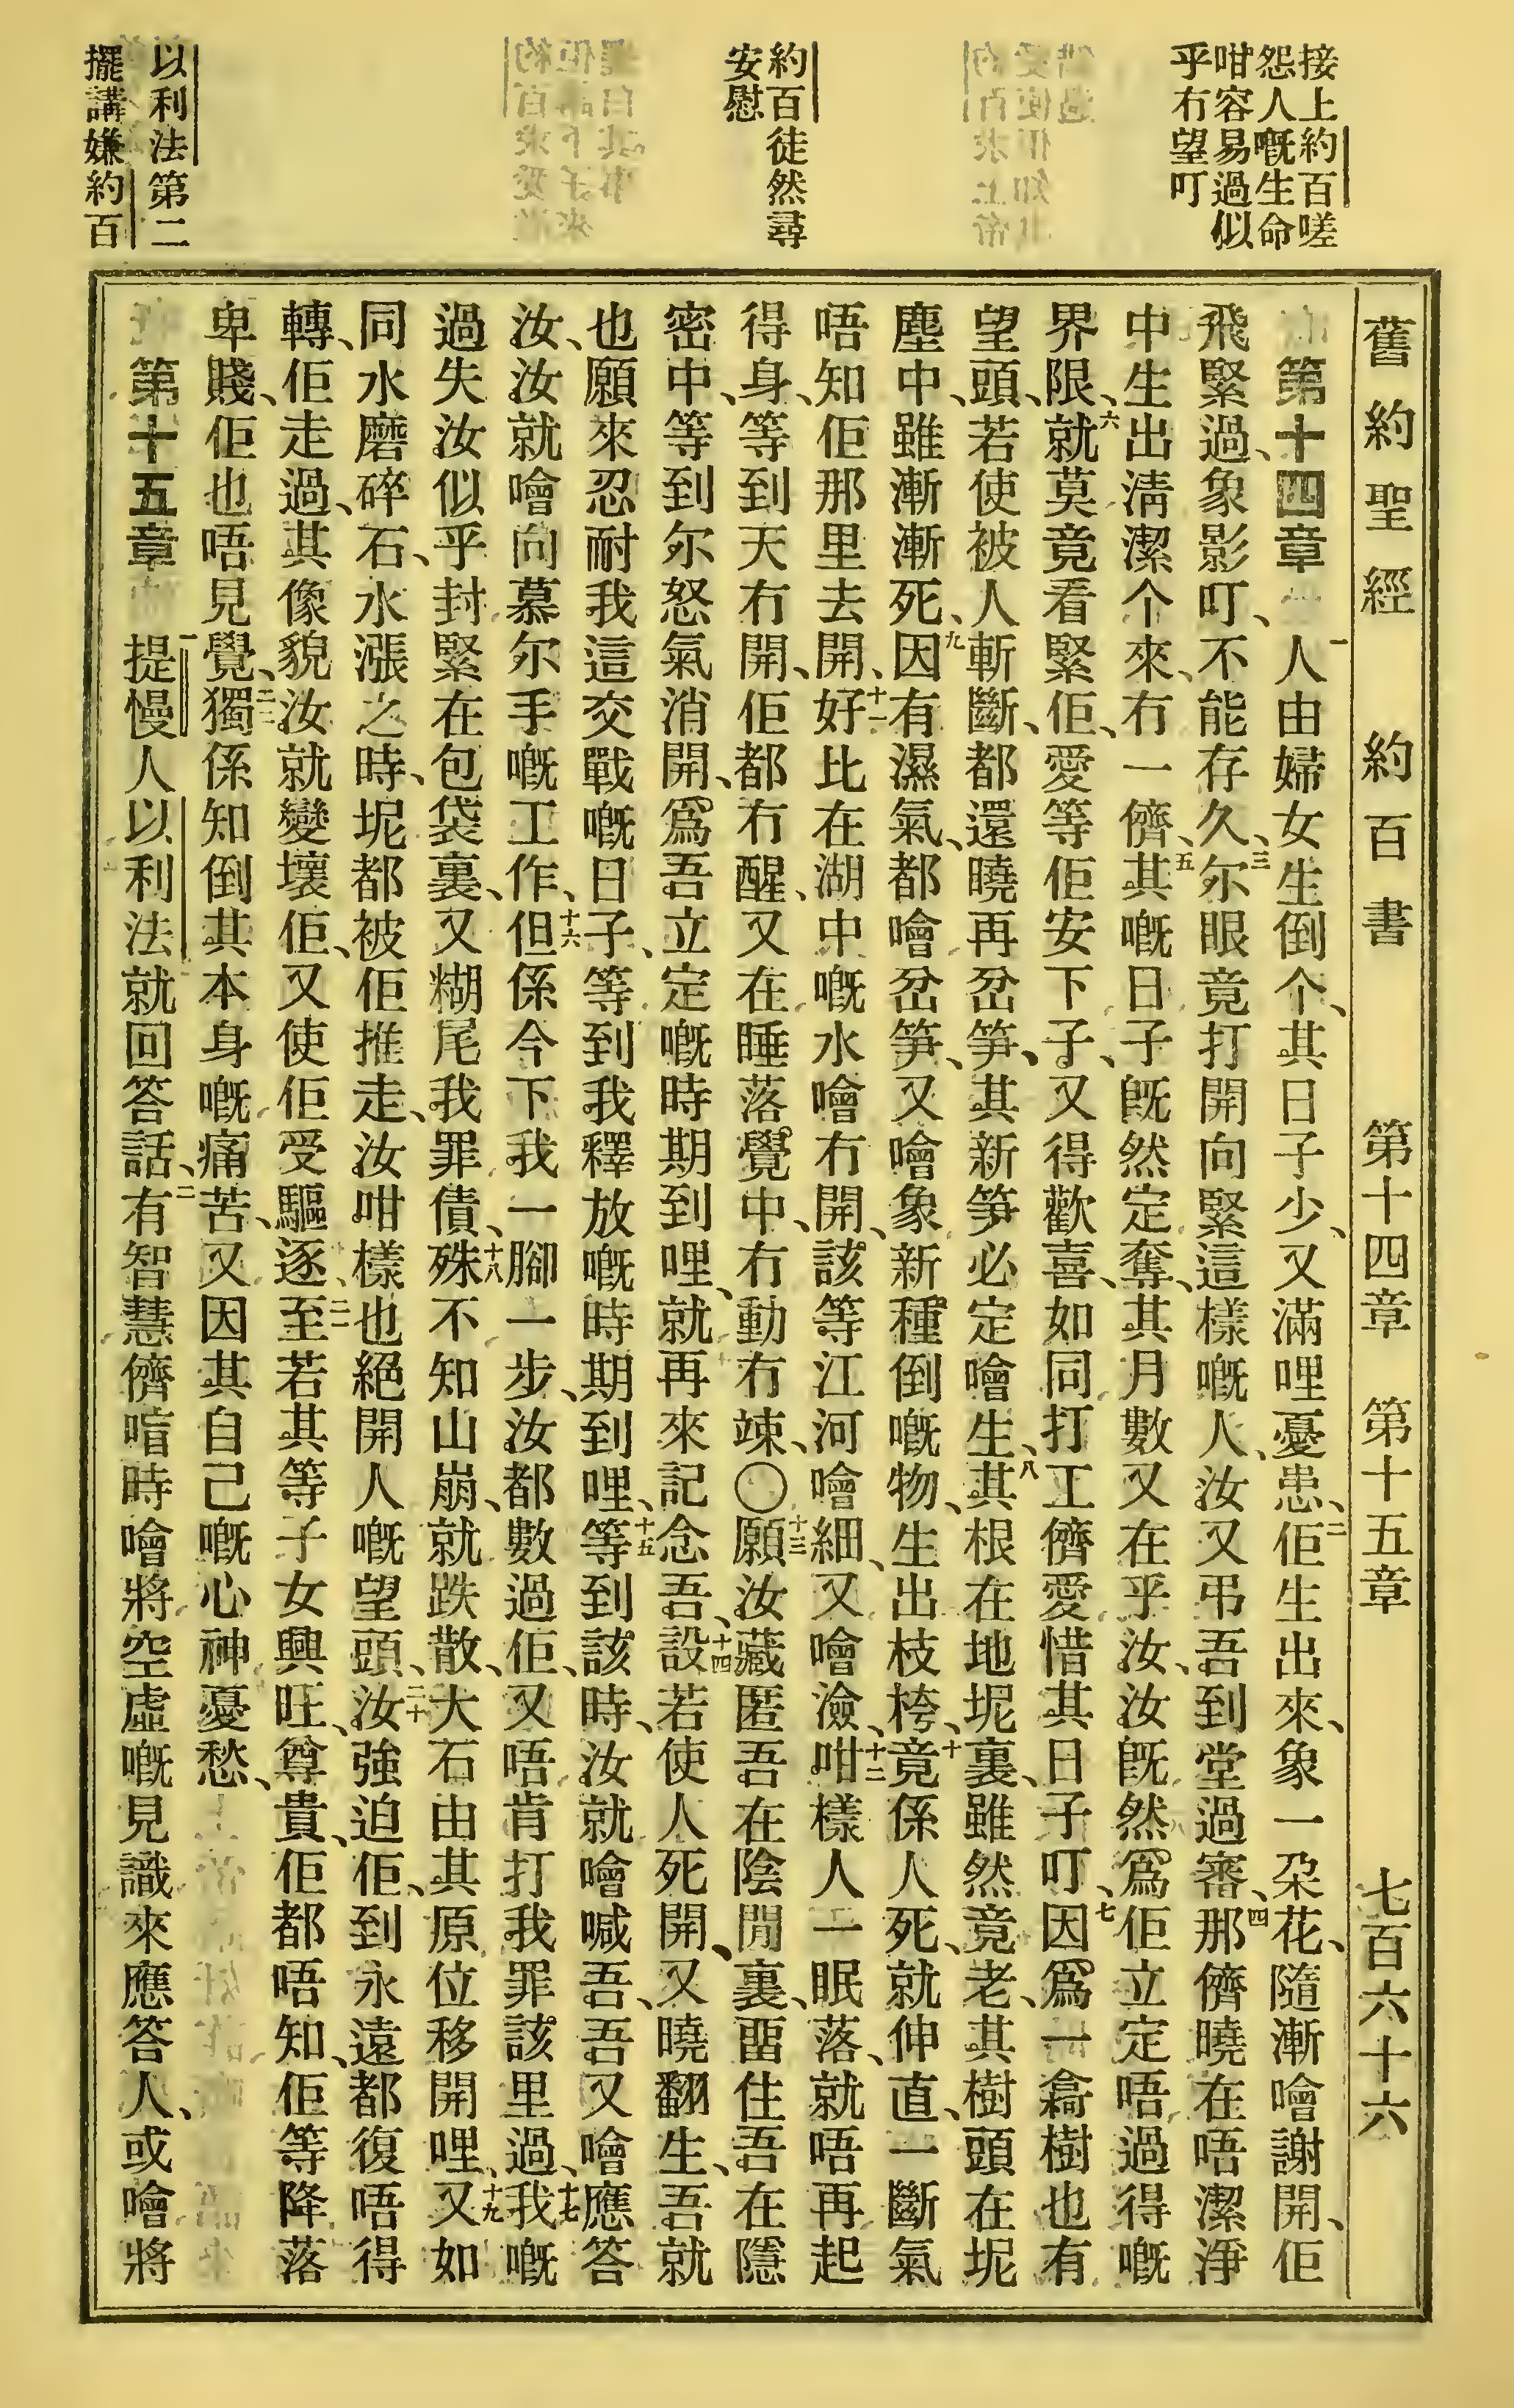 接上約百嗟
怨人嘅生命
咁容易過似
乎冇望叮
約百徒然尋
安慰
以利法第二
擺講嫌約百
舊約聖經 約百書 第十四章 第十五章 七百六十六
第十四章 一人由婦女生倒个、其日子少、又滿哩憂患、二佢生出來、象一朶花、隨漸噲謝開、佢
飛緊過、象影叮、不能存久、三尔眼竟打開向緊這樣嘅人、汝又弔吾到堂過審、四那儕曉在唔潔淨
中生出淸潔个來、冇一儕、五其嘅日子旣然定奪、其月數又在乎汝、汝旣然爲佢立定唔過得嘅
界限、六就莫竟看緊佢、愛等佢安下子、又得歡喜、如同打工儕愛惜其日子叮、七因爲一樖樹也有
望頭、若使被人斬斷、都還曉再㟇笋、其新笋必定噲生、八其根在地坭裏、雖然竟老、其樹頭在坭
塵中、雖漸漸死、九因有濕氣、都噲㟇笋、又噲象新種倒嘅物、生出枝桍、十竟係人死、就伸直、一斷氣
唔知佢那里去開、十一好比在湖中嘅水噲冇開、該等江河噲細、又噲澰、十二咁樣人一眠落、就唔再起
得身、等到天冇開、佢都冇醒、又在睡落覺中、冇動冇竦、〇十三願汝藏匿吾在陰間裏、畱住吾在隱
密中、等到尔怒氣消開、爲吾立定嘅時期到哩、就再來記念吾、十四設若使人死開、又曉翻生、吾就
也願來忍耐我這交戰嘅日子、等到我釋放嘅時期到哩、十五等到該時、汝就噲喊吾、吾又噲應答
汝、汝就噲向慕尔手嘅工作、十六但係今下我一腳一步、汝都數過佢、又唔肯打我罪該里過、十七我嘅
過失汝似乎封緊在包袋裏、又糊尾我罪債、十八殊不知山崩、就跌散、大石由其原位移開哩、十九又如
同水磨碎石、水漲之時、坭都被佢推走、汝咁樣也絕開人嘅望頭、二十汝強迫佢、到永遠都復唔得
轉、佢走過、其像貌汝就變壞佢、又使佢受驅逐、二一至若其等子女興旺、尊貴、佢都唔知、佢等降落
卑賤、佢也唔見覺、二二獨係知倒其本身嘅痛苦、又因其自己嘅心神憂愁、
第十五章 一提慢人以利法就回答話、二有智慧儕喑時噲將空虛嘅見識來應答人、或噲將